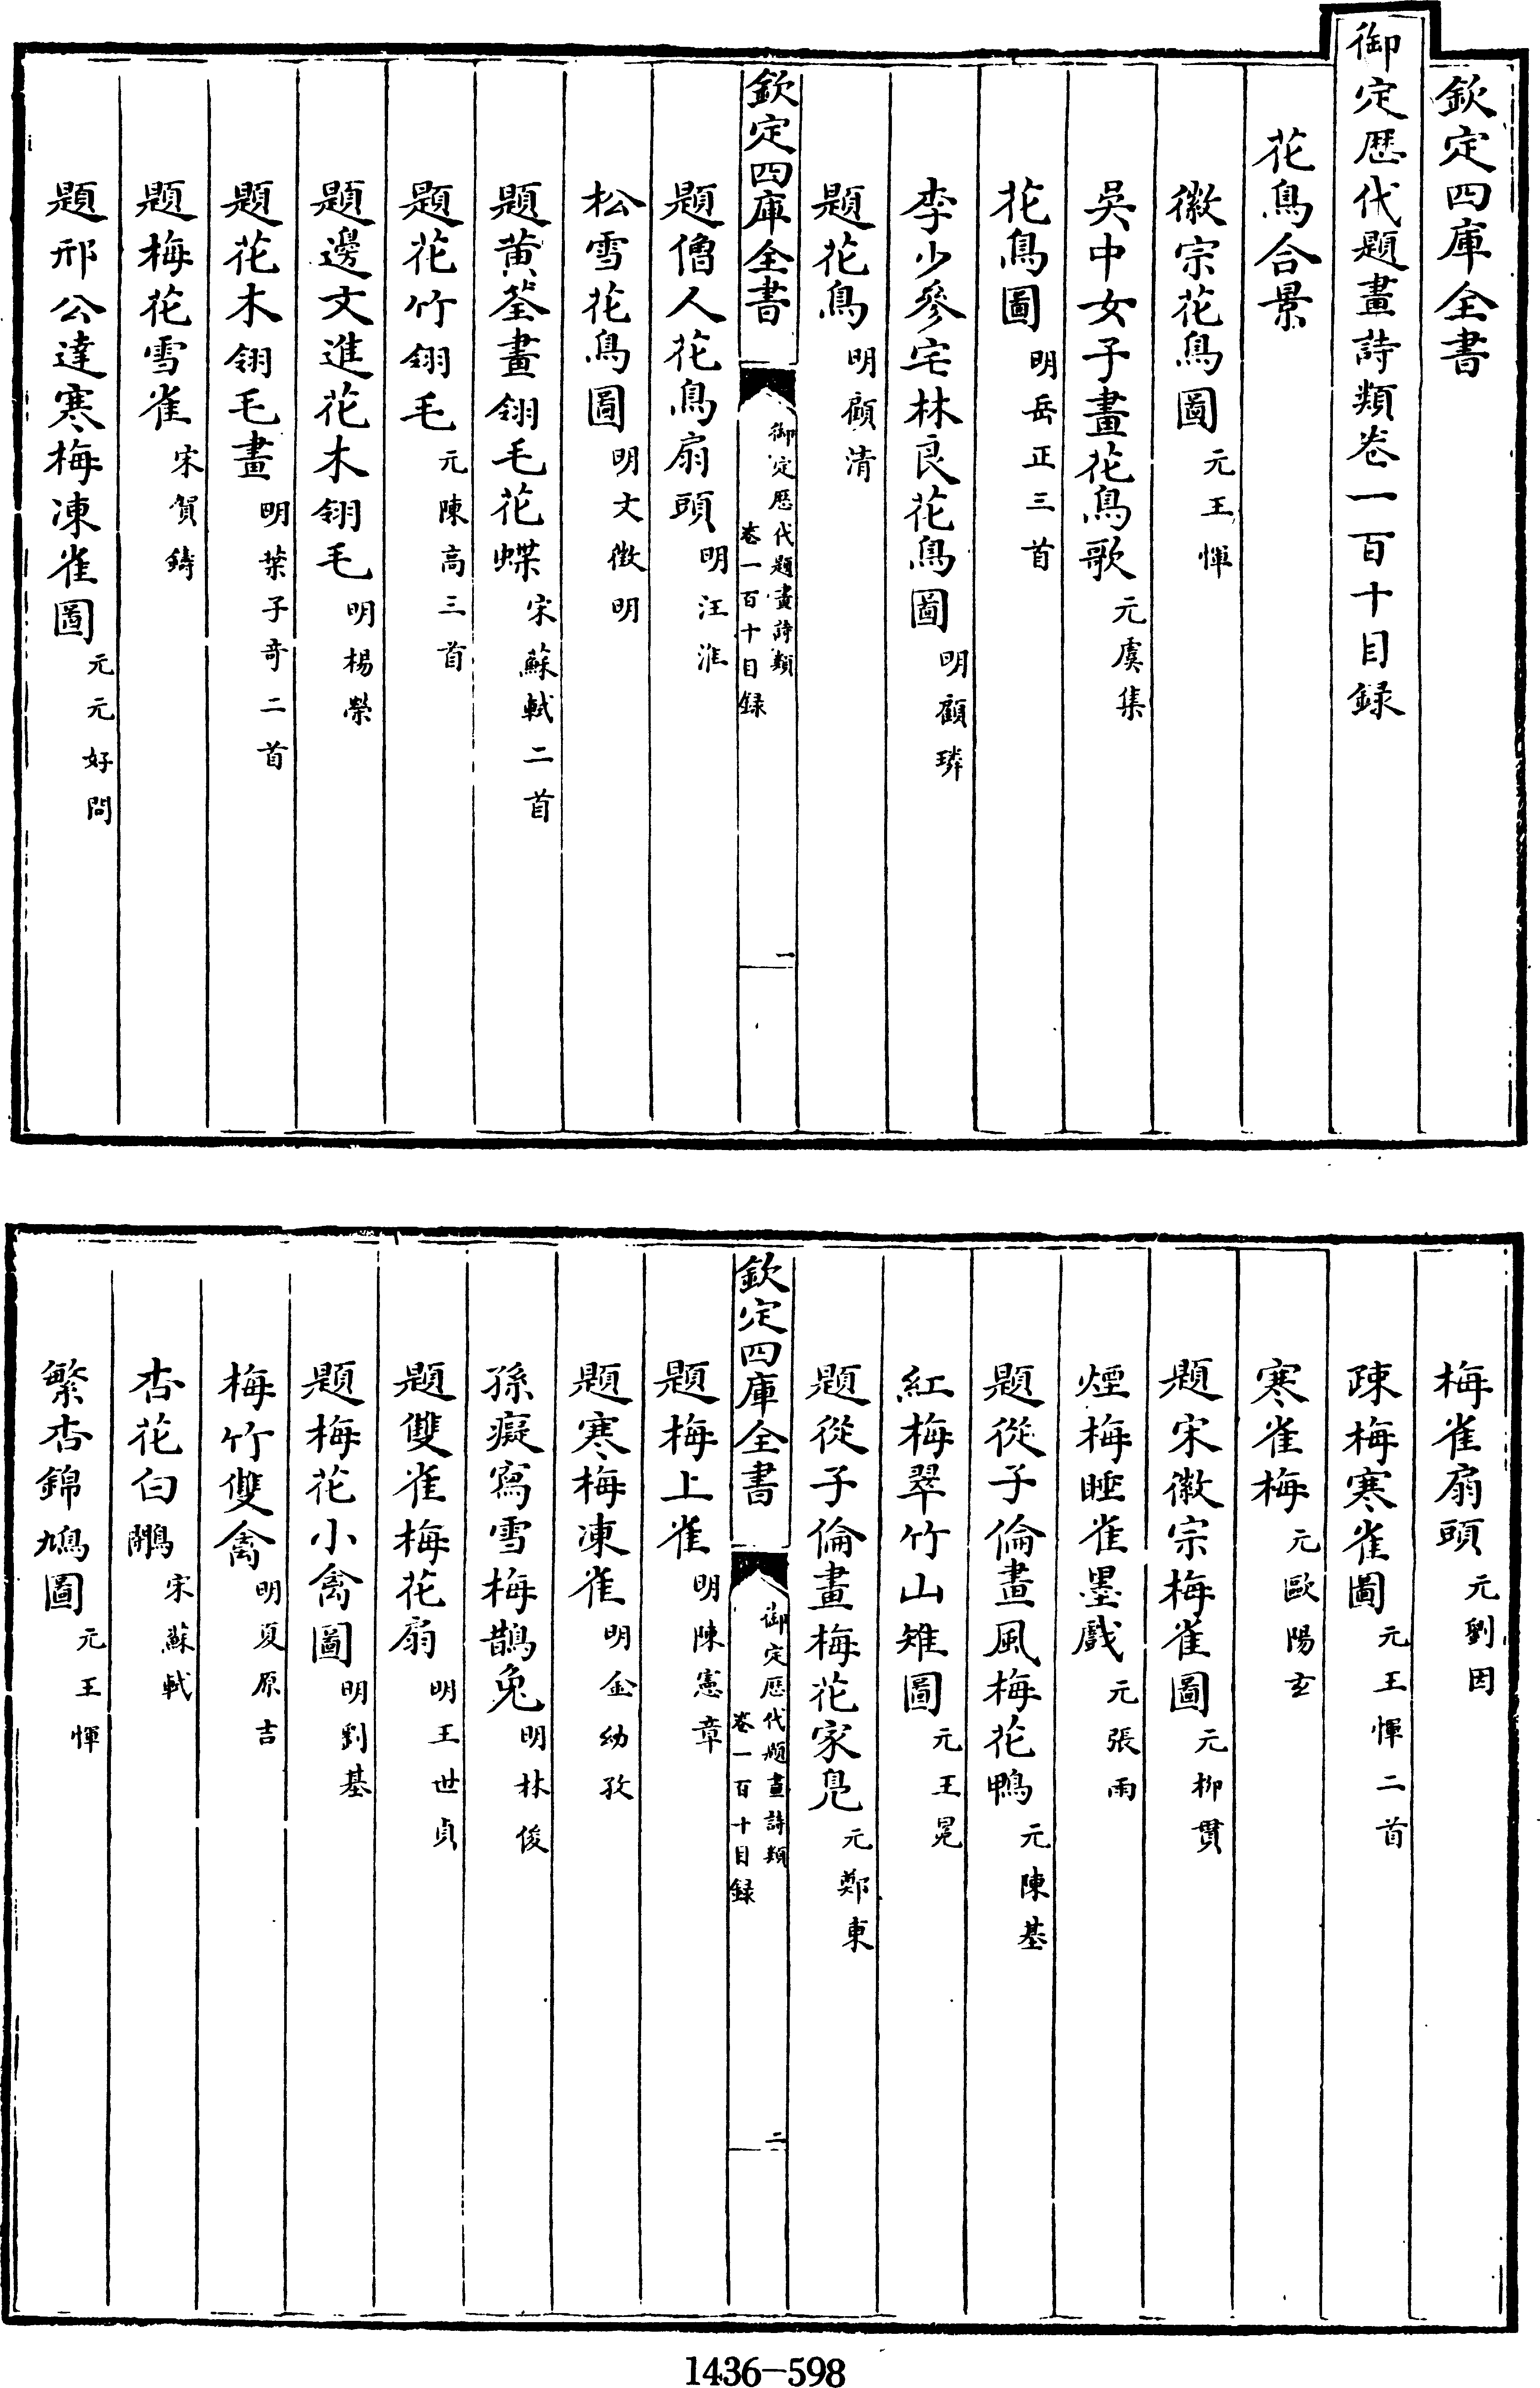 欽定四庫全書
御定歴代題畫詩類卷一百十目録
花鳥合景
徽宗花鳥圖元王惲
吳中女子畫花鳥歌元虞集
花鳥圖明岳正三首
李少參宅林良花鳥圖明顧璘
題花鳥明顧清
欽定四庫全書
御定歴代題畫詩類
卷一百十目録
一
題僧人花鳥扇頭明汪淮
松雪花鳥圖明文徵明
題黄筌畫翎毛花蝶宋蘇軾二首
題花竹翎毛元陳高三首
題邊文進花木翎毛明楊榮
題花木翎毛畫明葉子竒二首
題梅花雪雀宋賀鑄
題邢公達寒梅凍雀圖元元好問
梅雀扇頭元劉因
疎梅寒雀圖元王惲二首
寒雀梅元歐陽玄
題宋徽宗梅雀圖元柳貫
煙梅睡雀墨戲元張雨
題從子倫畫風梅花鴨元陳基
紅梅翠竹山雉圖元王冕
題從子倫畫梅花家鳬元鄭東
欽定四庫全書
御定歴代題畫詩類
卷一百十目録
二
題梅上雀明陳憲章
題寒梅凍雀明金幼孜
孫癡寫雪梅鵲兔明林俊
題雙雀梅花扇明王世貞
題梅花小禽圖明劉基
梅竹雙禽明夏原吉
杏花白鷴宋蘇軾
繁杏錦鳩圖元王惲
1436-598